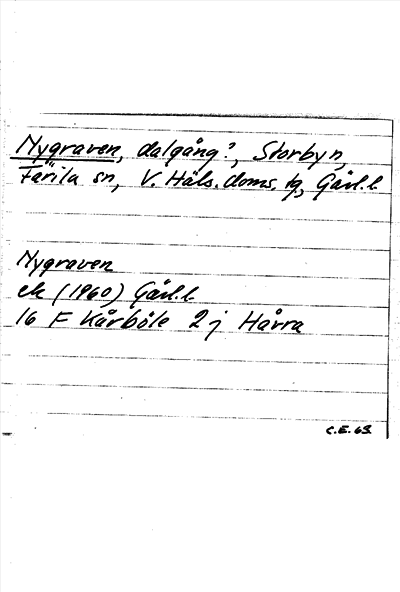 Nygraven, dalgång?, Storbyn,
Färila sn, V. Häls. doms. tg, Gävl. l.
Nygraven
ek (1960) Gävl. l.
16 F Kårböle 2 j Hårra
C.E. 63.